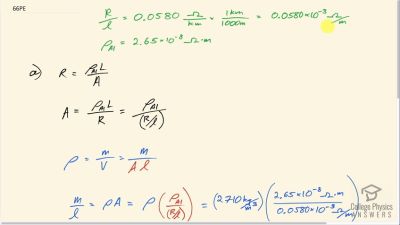 66PE
R/l = 0.0580 Ω/km × 1km/1000m = 0.0580×10⁻³ Ω/m
ρ_Al = 2.65×10⁻⁸ Ω·m
a) R = ρ_Al L / A
A = ρ_Al L / R = ρ_Al / (R/l)
ρ = m/V = m/(A l)
m/l = ρA = ρ (ρ_Al / (R/l)) = (2710 kg/m³) (2.65×10⁻⁸ Ω·m / 0.0580×10⁻³ Ω/m)
College Physics
ANSWERS